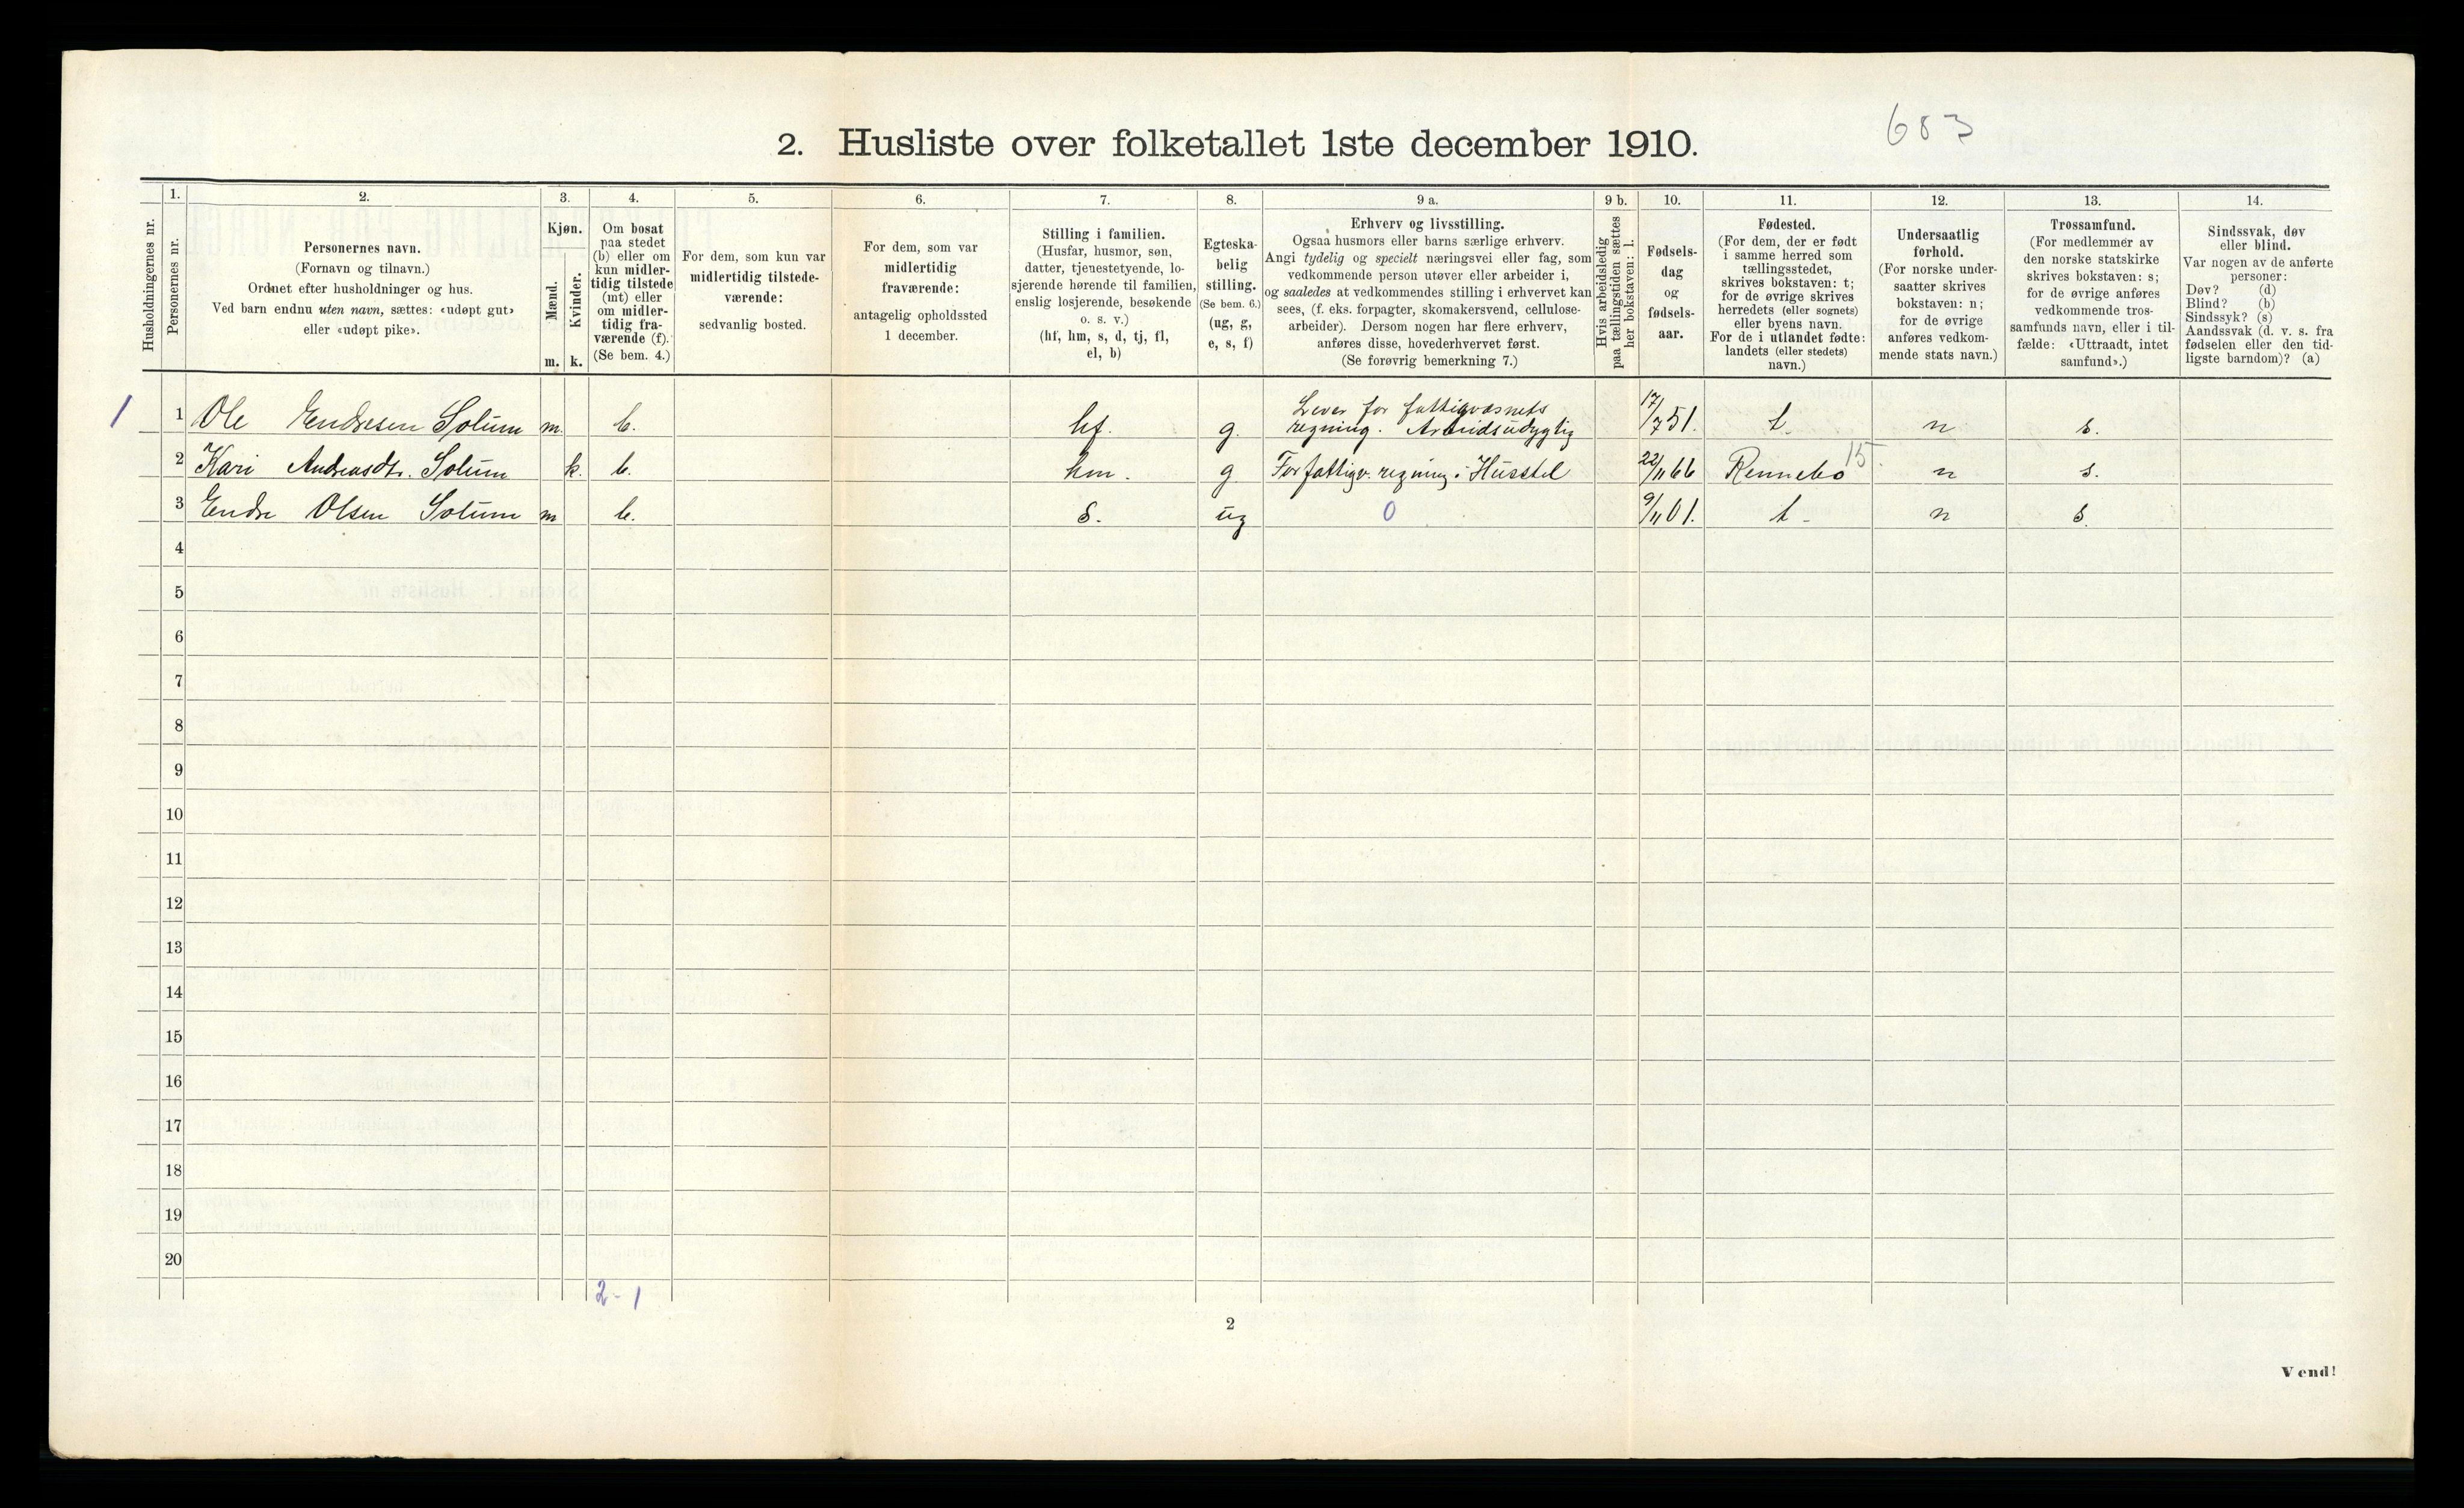 683
2. Husliste over folketallet 1ste december 1910.
Husholdningernes nr.
1.
Personernes nr.
2.
Personernes navn.
(Fornavn og tilnavn.)
Ordnet efter husholdninger og hus.
Ved barn endnu uten navn, sættes: «udøpt gut»
eller «udøpt pike».
3.
Kjøn.
Mænd.
Kvinder.
m. k.
4.
Om bosat
paa stedet
(b) eller om
kun midler-
tidig tilstede
(mt) eller
om midler-
tidig fra-
værende (f).
(Se bem. 4.)
5.
For dem, som kun var
midlertidig tilstede-
værende:
sedvanlig bosted.
6.
For dem, som var
midlertidig
fraværende:
antagelig opholdssted
1 december.
7.
Stilling i familien.
(Husfar, husmor, søn,
datter, tjenestetyende, lo-
sjerende hørende til familien,
enslig losjerende, besøkende
o. s. v.)
(hf, hm, s, d, tj, fl,
el, b)
8.
Egteska-
belig
stilling.
(Se bem. 6.)
(ug, g,
e, s, f)
9 a.
Erhverv og livsstilling.
Ogsaa husmors eller barns særlige erhverv.
Angi tydelig og specielt næringsvei eller fag, som
vedkommende person utøver eller arbeider i,
og saaledes at vedkommendes stilling i erhvervet kan
sees, (f. eks. forpagter, skomakersvend, cellulose-
arbeider). Dersom nogen har flere erhverv,
anføres disse, hovederhvervet først.
(Se forøvrig bemerkning 7.)
9 b.
Hvis arbeidsledig
paa tællingstiden sættes
her bokstaven: l.
10.
Fødsels-
dag
og
fødsels-
aar.
11.
Fødested.
(For dem, der er født
i samme herred som
tællingsstedet,
skrives bokstaven: t;
for de øvrige skrives
herredets (eller sognets)
eller byens navn.
For de i utlandet fødte:
landets (eller stedets)
navn.)
12.
Undersaatlig
forhold.
(For norske under-
saatter skrives
bokstaven: n;
for de øvrige
anføres vedkom-
mende stats navn.)
13.
Trossamfund.
(For medlemmer av
den norske statskirke
skrives bokstaven: s;
for de øvrige anføres
vedkommende tros-
samfunds navn, eller i til-
fælde: «Uttraadt, intet
samfund».)
14.
Sindssvak, døv
eller blind.
Var nogen av de anførte
personer:
Døv? (d)
Blind? (b)
Sindssyk? (s)
Aandssvak (d. v. s. fra
fødselen eller den tid-
ligste barndom)? (a)
1 1 Ole Endresen Solum m. b. hf. g. Lever for fattigvæsnets
regning. Arbeidsudygtig 17/7 51. t. n s.
2 Kari Andreasdtr. Solum k. b. hm. g For fattigv. regning i Husstel 22/11 66 Rennebo 15. n s.
3 Endre Olsen Solum m b. s. ug 0 9/11 01. t. n s.
4
5
6
7
8
9
10
11
12
13
14
15
16
17
18
19
20
2 - 1
2
Vend!